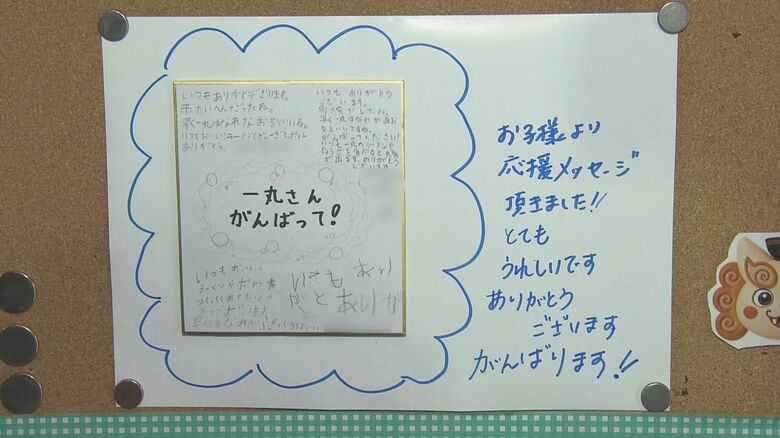 いつもありがとうございます。
雨たいへんだったね。
早く一丸はなれなおるといいね。
いつもおいしいラーメンと
ありがとう。
いつも ありがとう
ございます。
雨大変でしたね。
早く一丸はなれが直お
るといいですね。
がんばってください!
いつも一丸のラーメンと
ぎょうざを食べると元気
が出ます。ありがとう
ございます
一丸さん
がんばって!
いつもおいしい
ラーメンやギョーザ
つくってくれて
早く
いつも あり
がと ありが
お子様より
応援メッセージ
頂きました!!
とても
うれしいです
ありがとう
ございます
がんばります!!